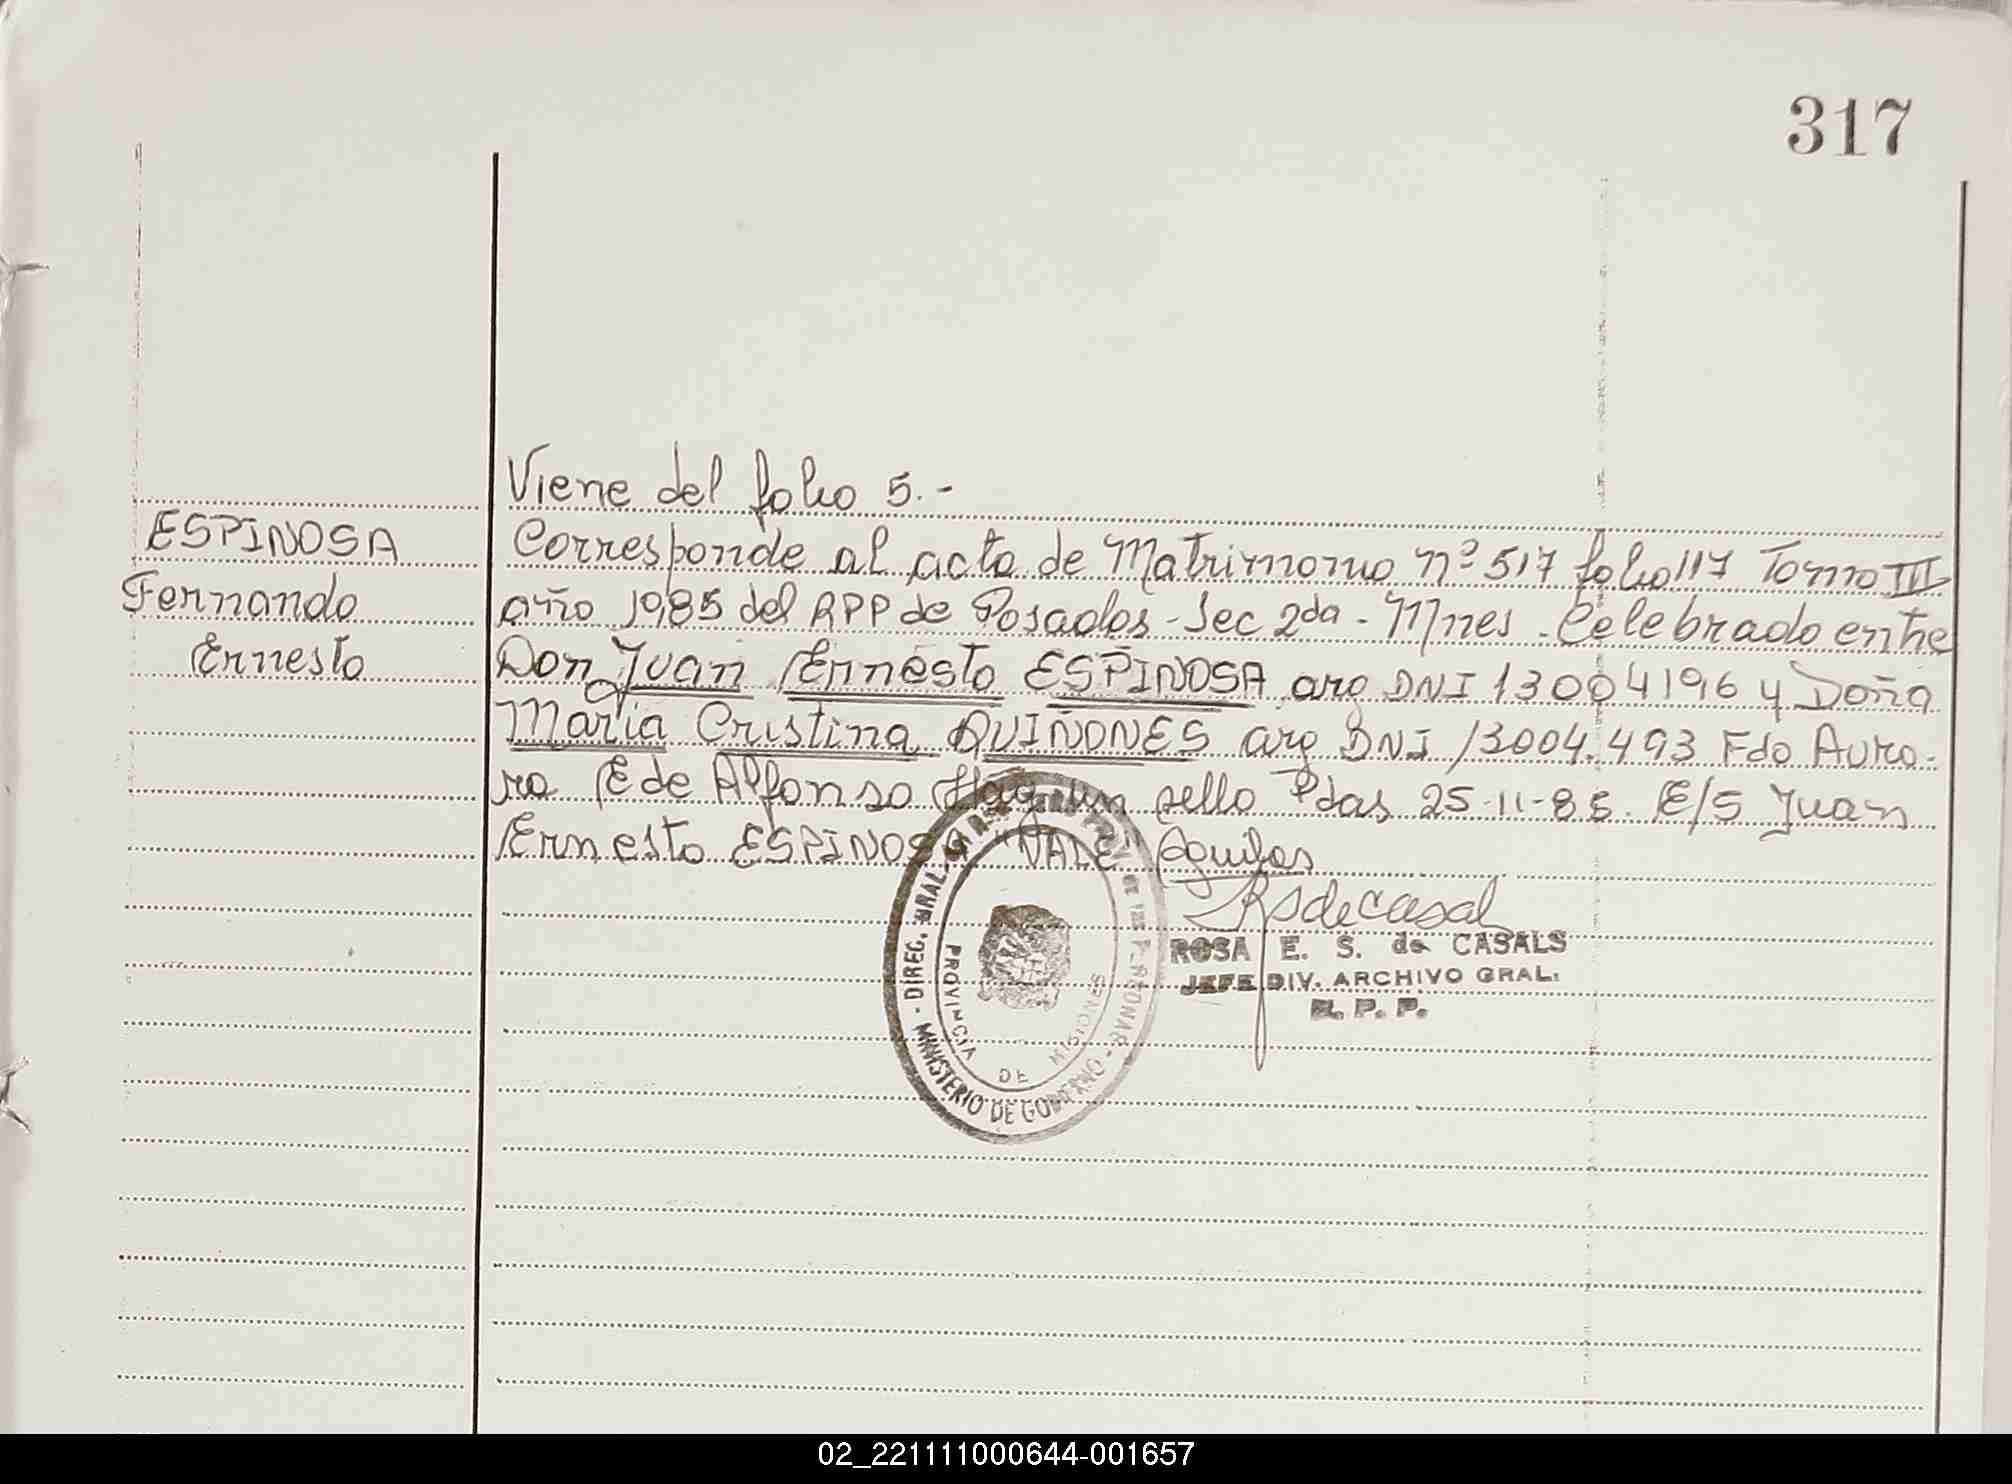 317
Viene del folio 5.-
ESPINOSA
Fernando
Ernesto
Corresponde al acta de Matrimonio nº 517 folio 117 Tomo III
año 1985 del RPP de Posadas - Sec 2da - Mnes. Celebrado entre
Don Juan Ernesto ESPINOSA arg DNI 13004196 y Doña
María Cristina QUIÑONES arg DNI 13004.493 Fdo Auro-
ra E de Alfonso Hay un sello Pdas 25-11-85. E/S Juan
Ernesto ESPINOSA "VALE"
RSdeCasal
ROSA E. S. de CASALS
JEFE DIV. ARCHIVO GRAL.
R. P. P.
MINISTERIO DE GOBIERNO - DIREC. GRAL. DE LAS PERSONAS
PROVINCIA DE MISIONES
02_221111000644-001657